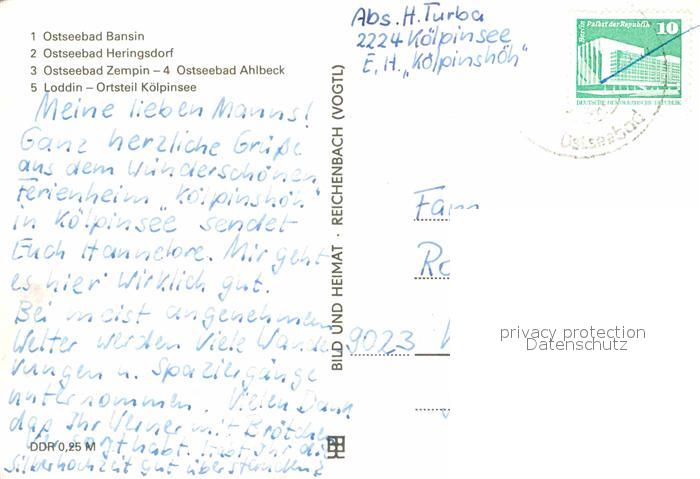 1 Ostseebad Bansin
2 Ostseebad Heringsdorf
3 Ostseebad Zempin – 4 Ostseebad Ahlbeck
5 Loddin – Ortsteil Kölpinsee
Meine lieben Manns!
Ganz herzliche Grüße
aus dem wunderschönen
Ferienheim „Kölpinshöh"
in Kölpinsee sendet
Euch Hannelore. Mir geht
es hier wirklich gut.
Bei meist angenehmem
Wetter werden viele Wande-
rungen u. Spaziergänge
unternommen. Vielen Dank
daß Ihr Werner mit Brötchen
versorgt habt. Habt Ihr die
Silberhochzeit gut überstanden?
DDR 0,25 M
BILD UND HEIMAT · REICHENBACH (VOGTL)
Abs. H. Turba
2224 Kölpinsee
E. H. „Kölpinshöh"
Berlin Palast der Republik
10
DEUTSCHE DEMOKRATISCHE REPUBLIK
Ostseebad
Fam
9023
privacy protection
Datenschutz